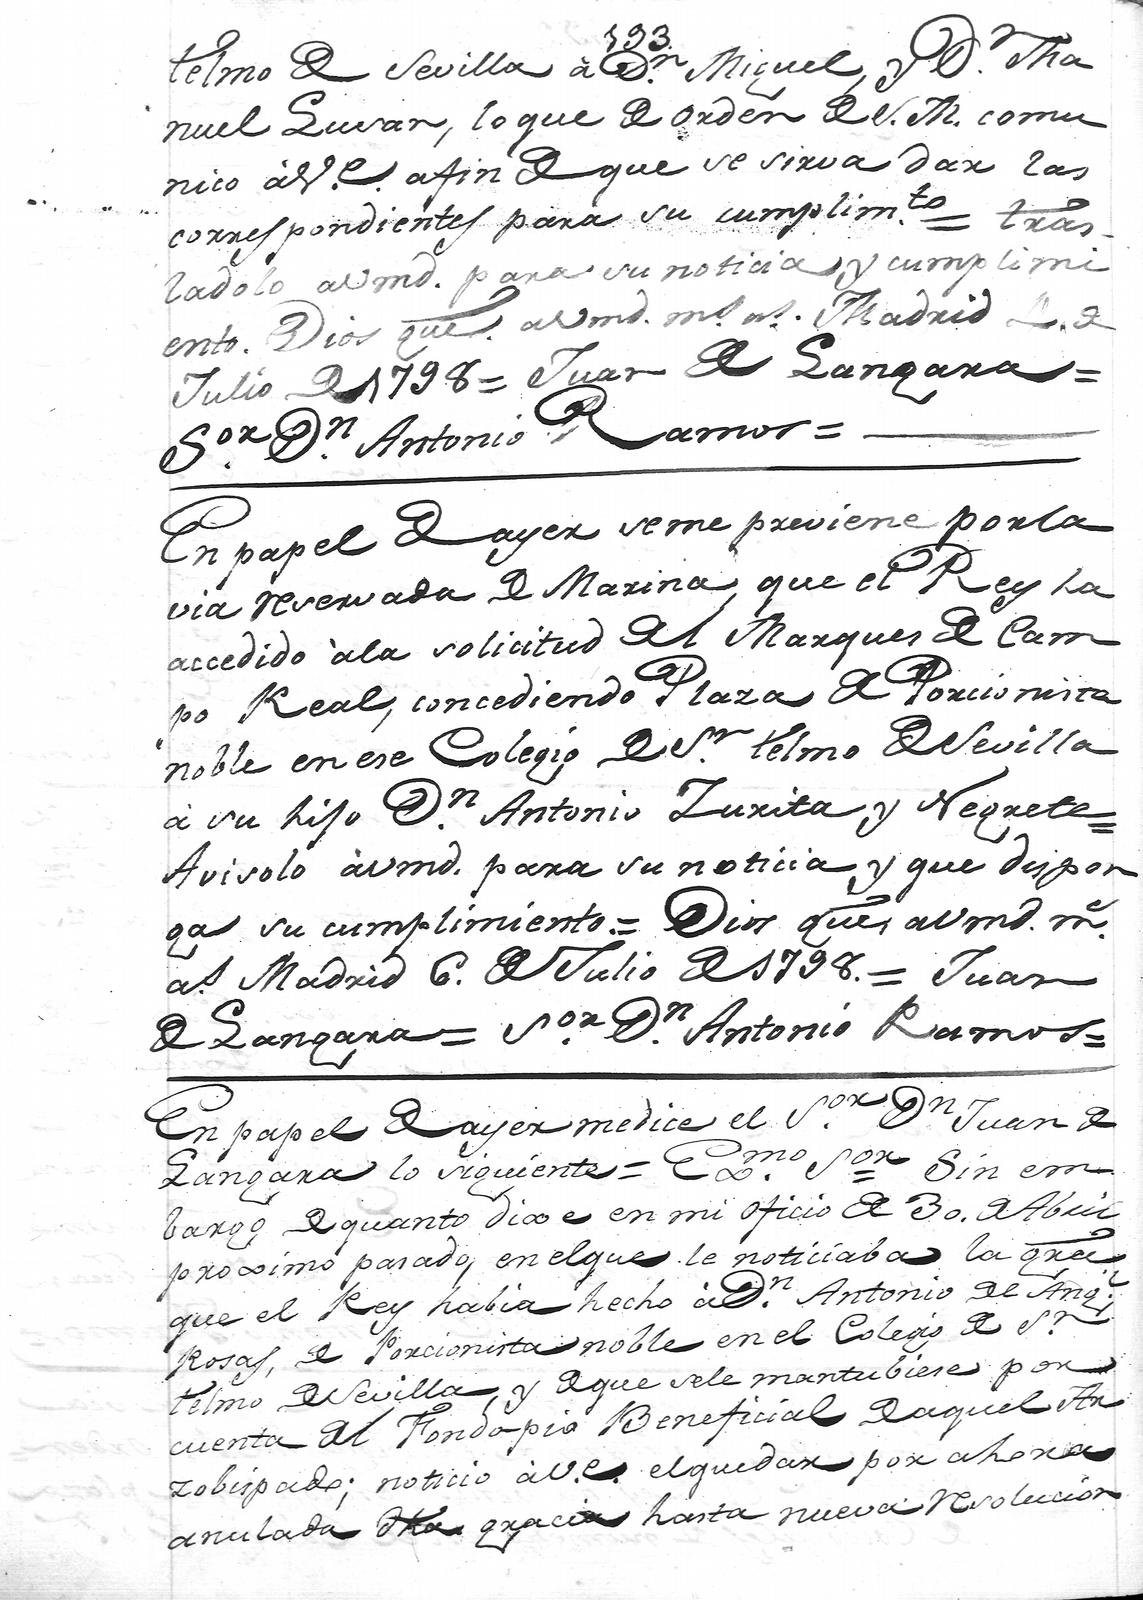 193
telmo de Sevilla à Dn. Miguel, y Dn. Ma
nuel Luvar, lo que de orden de S. M. comu
nico à V. e. afin de que se sirva dar las
correspondientes para su cumplim.to = tras-
ladolo aVmd. para su noticia, y cumplimi
ento. Dios gue. aVmd. ms. as. Madrid de
Julio de 1798 = Juan de Langara =
Sor. Dn. Antonio Ramos =
En papel de ayer seme previene por la
via reservada de Marina, que el Rey ha
accedido àla solicitud del Marques de Cam
po Real, concediendo Plaza de Porcionista
noble en ese Colegio de Sn. telmo de Sevilla
à su hijo Dn. Antonio Zurita, y Negrete =
Avisolo àVmd. para su noticia, y que dispon
ga su cumplimiento. = Dios gue. aVmd. ms.
as. Madrid 6. de Julio de 1798. = Juan
de Langara = Sor. Dn. Antonio Ramos =
En papel de ayer me dice el Sor. Dn. Juan de
Langara lo siguiente = Exmo. Sor. = Sin em
bargo de quanto dixe en mi oficio de 30. de Abril
proximo pasado, en el que le noticiaba la gra
que el Rey habia hecho à Dn. Antonio de Angl.
Rosas, de Porcionista noble en el Colegio de Sn.
telmo de Sevilla, y de que sele mantubiese por
cuenta del Fondo pio Beneficial de aquel Ar
zobispado; noticio àV. e. el quedar por ahora
anulada dha gracia hasta nueva resolucion